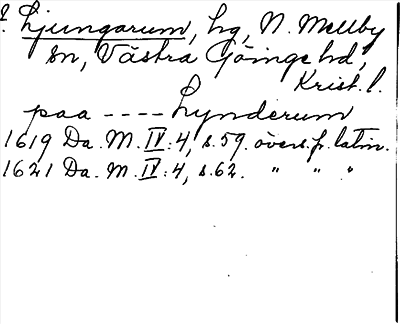 ? Ljungarum, hg, N. Mellby
sn, Västra Göinge hd,
Krist. l.
paa ---- Lynderum
1619 Da. M. IV:4, s. 59. övers. fr. latin.
1621 Da. M. IV:4, s. 62. " " "